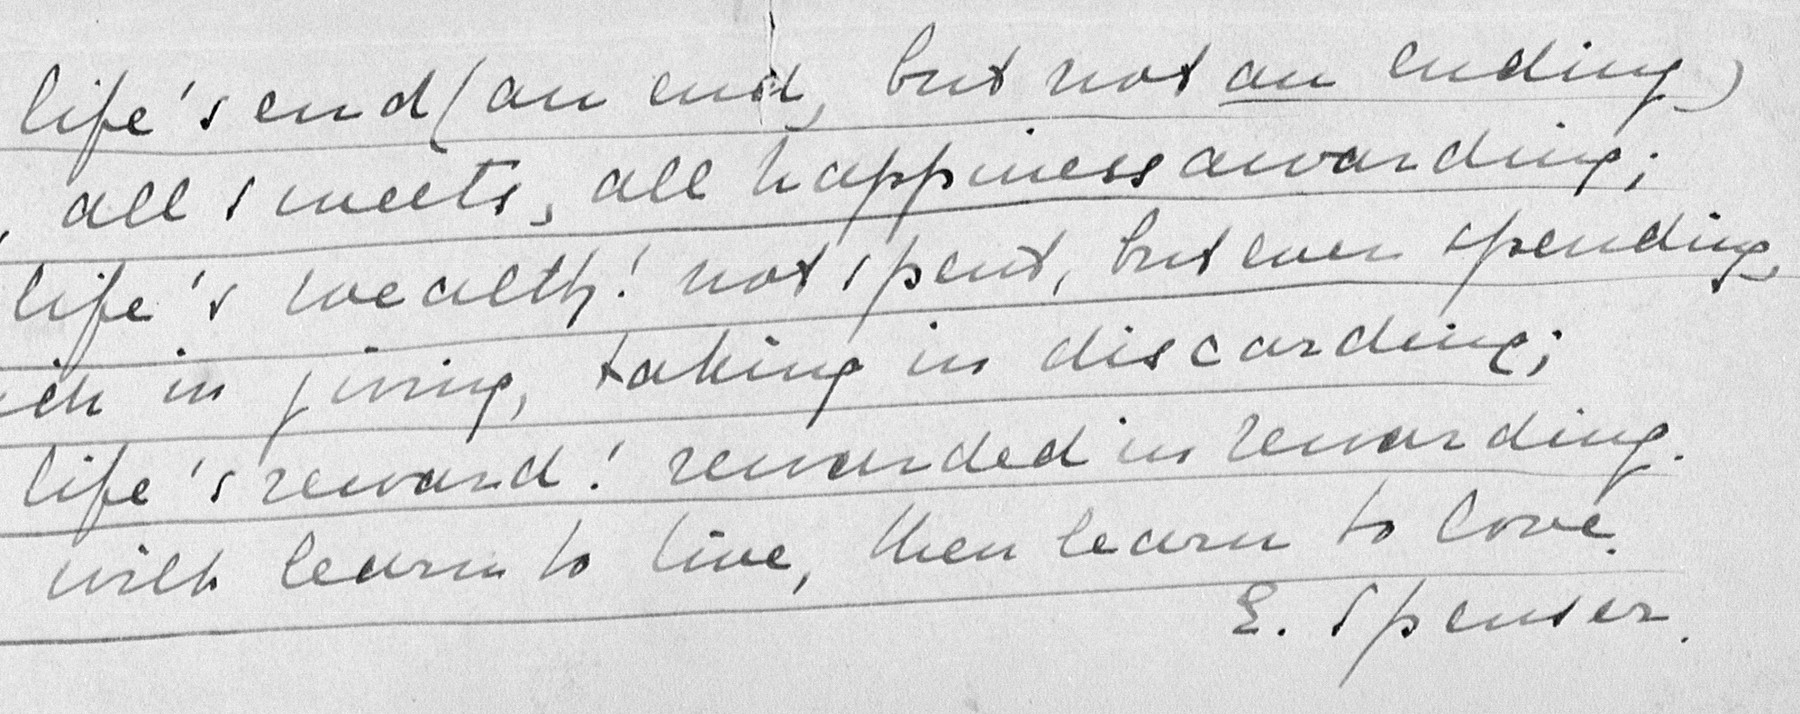 life's end (an end, but not an ending)
, all sweets, all happiness awarding;
life's wealth! not spent, but ever spending,
ich in giving, taking in discarding;
life's reward! rewarded in rewarding.
wilt learn to live, then learn to love.
E. Spenser.